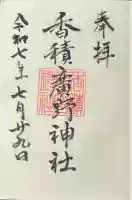 奉拝
香積廣野神社
令和七年七月廿九日